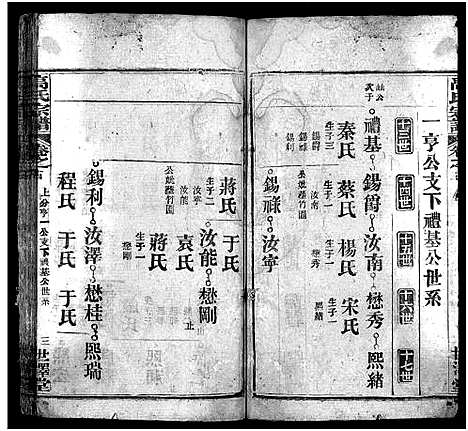 高氏宗譜
一亨公支下禮基公世系
十三世
十四世
十五世
十六世
十七世
禮基 錫爵 汝南 懋秀 熙緒
秦氏 蔡氏 楊氏 宋氏
生子三 生子一 生子一 生子一
錫爵 汝南 懋秀 熙緒
錫祿 公妣葬竹園
錫利
錫祿 汝寧
蔣氏 于氏
生子二
汝寧 汝能 懋剛
汝能 袁氏 止
公妣葬竹園 生子一 蔣氏
懋剛
錫利 汝澤 懋桂 熙瑞
程氏 于氏 于氏
高氏宗譜
上分亨一公支下禮基公世系
三 世澤堂